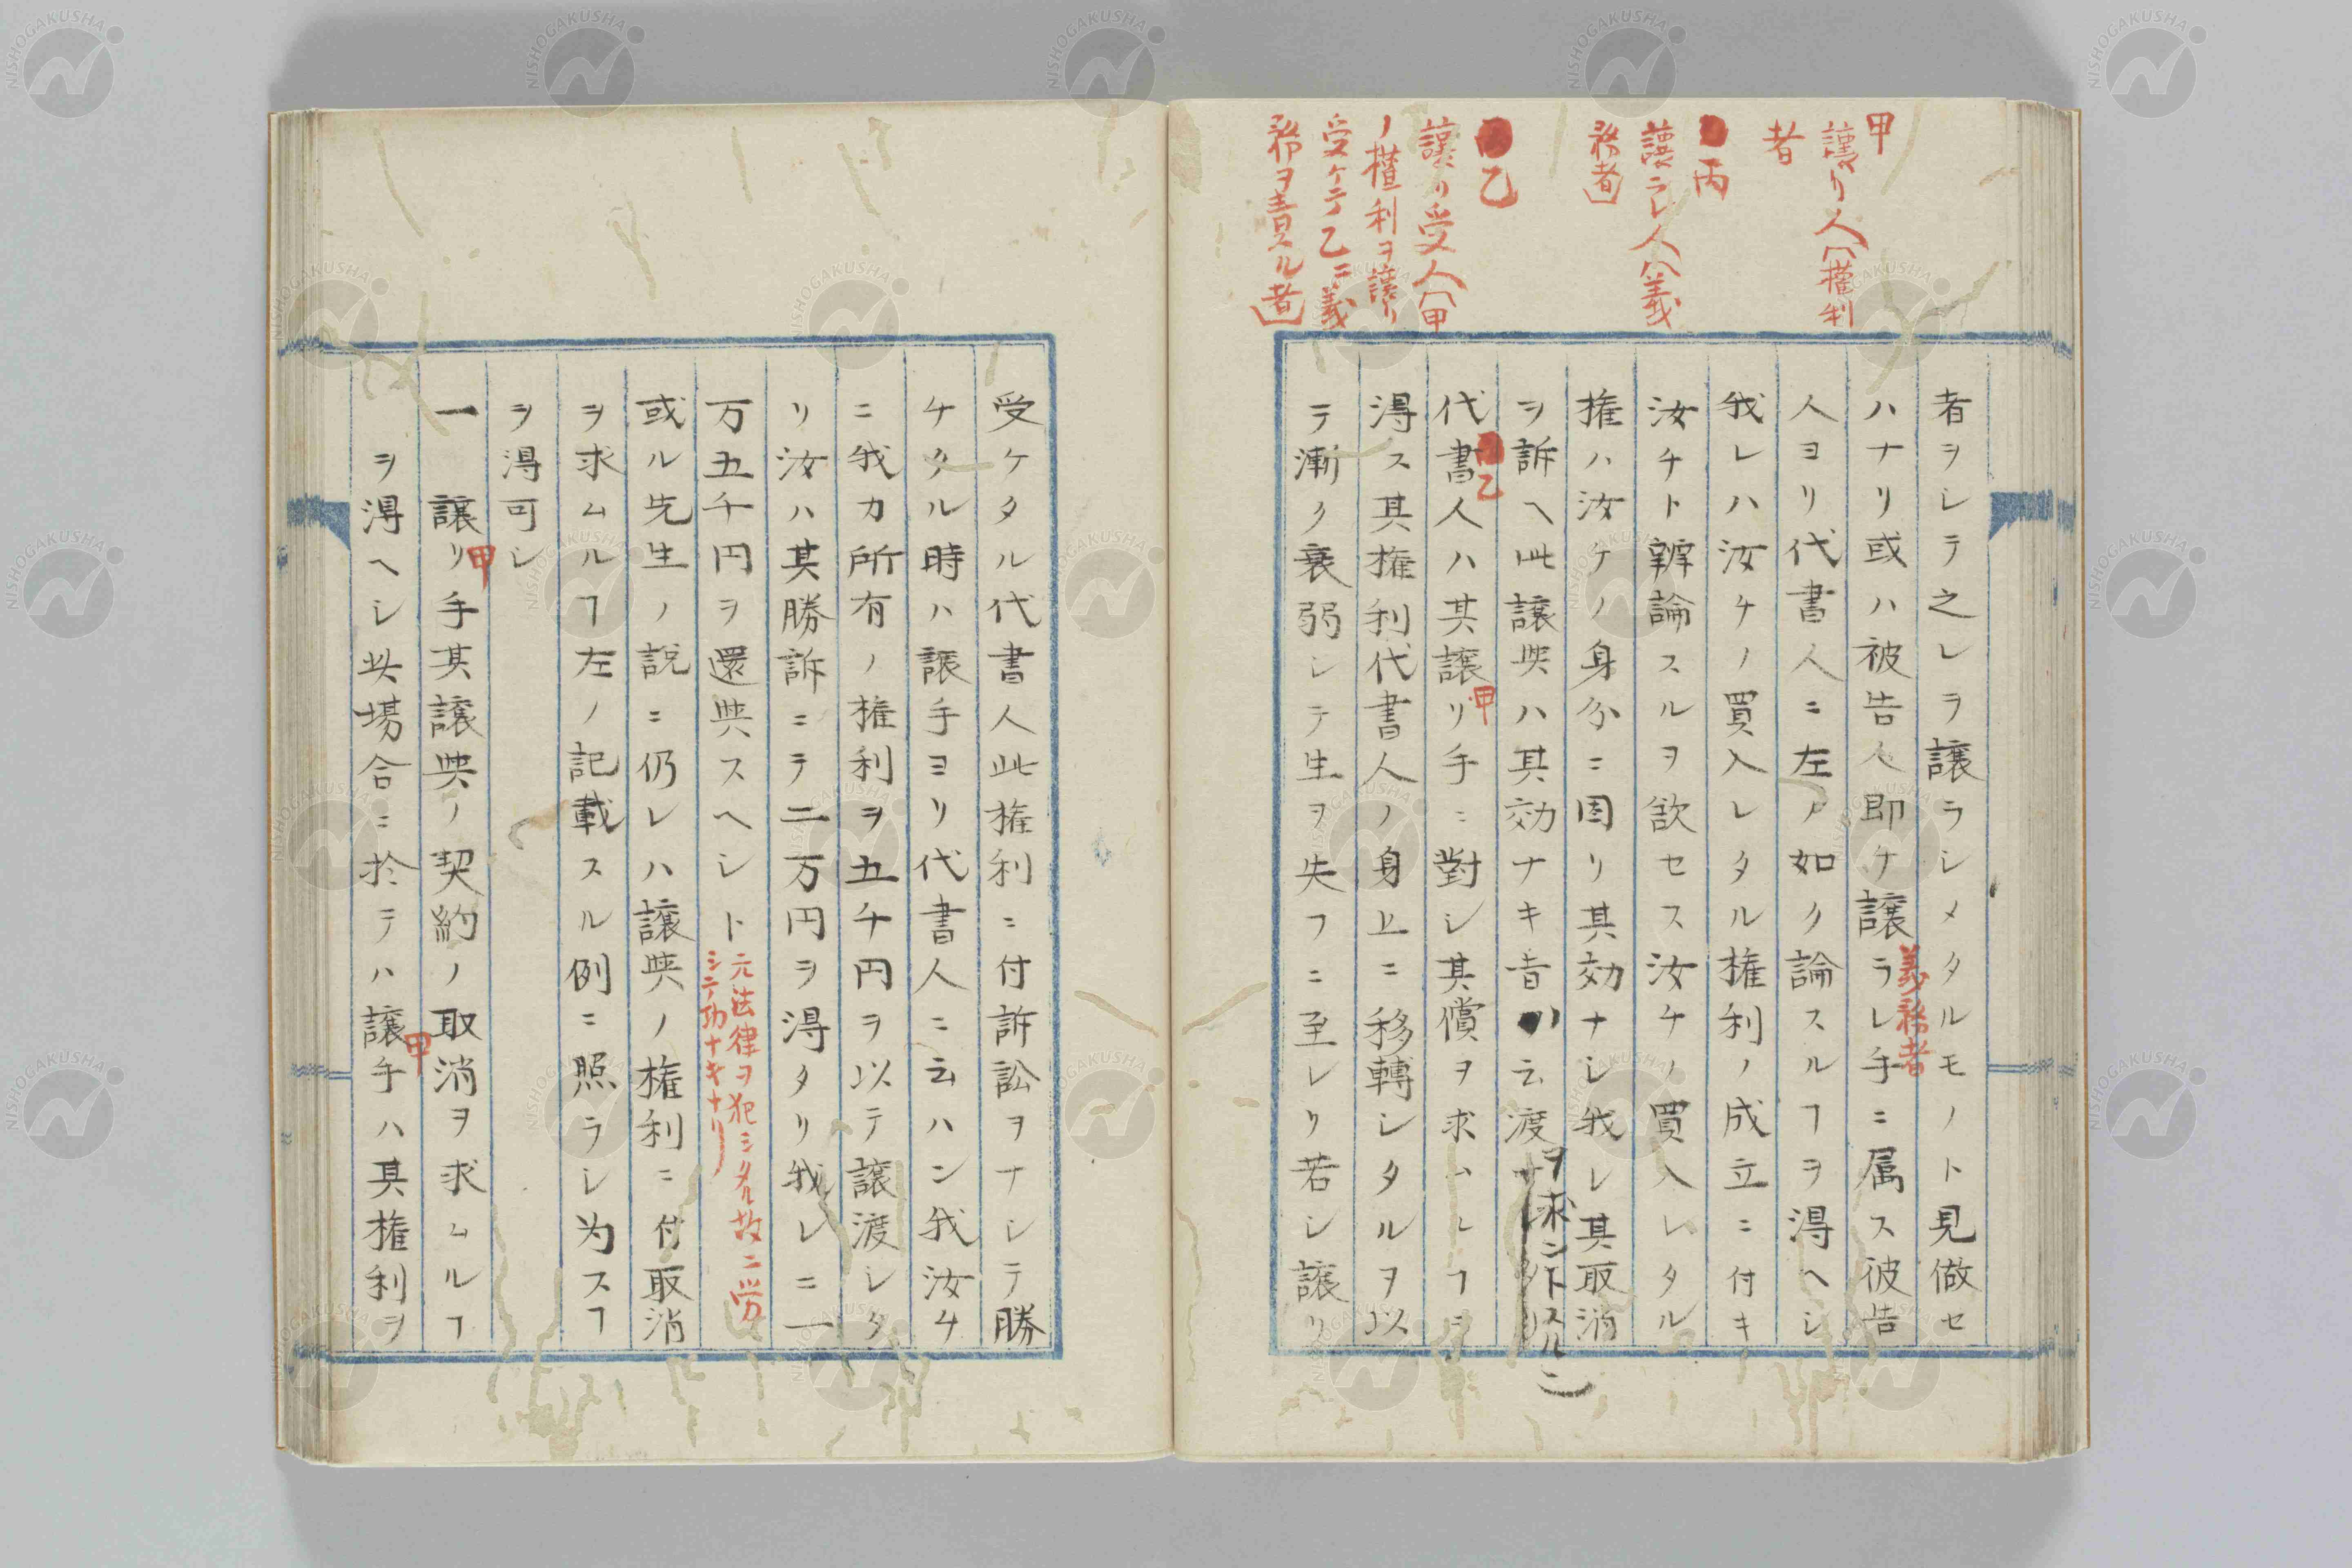 甲
譲リ人(権利
者
丙
譲ラレ人(義
務者)
乙
譲リ受人(甲
ノ権利ヲ譲リ
受ケテ乙ニ義
務ヲ責ル者)
者ヲシテ之レヲ譲ラシメタルモノト見做セ
ハナリ或ハ被告人即チ譲ラレ手ニ属ス彼告
義務者
人ヨリ代書人ニ左ノ如ク論スルヿヲ得ヘシ
我レハ汝チノ買入レタル権利ノ成立ニ付キ
汝チト辨論スルヲ欲セス汝チノ買入レタル
権ハ汝チノ身分ニ因リ其効ナシ我レ其取消
ヲ訴ヘ此譲與ハ其効ナキ旨ハ云渡
ヲ求ントスル)
代書人ハ其譲リ手ニ對シ其償ヲ求ムルヿヲ
乙
甲
得ス其権利代書人ノ身上ニ移轉シタルヲ以
テ漸ク衰弱シテ生ヲ失フニ至レリ若シ譲リ
受ケタル代書人此権利ニ付訴訟ヲナシテ勝
チタル時ハ譲手ヨリ代書人ニ云ハン我汝チ
ニ我カ所有ノ権利ヲ五千円ヲ以テ譲渡シタ
リ汝ハ其勝訴ニテ二万円ヲ得タリ我レニ一
万五千円ヲ還與スヘシト
元法律ヲ犯シタル故ニ労
シテ功ナキナリ
或ル先生ノ説ニ仍レハ譲與ノ権利ニ付取消
ヲ求ムルヿ左ノ記載スル例ニ照ラシ为スヿ
ヲ得可シ
一 譲リ手其譲與ノ契約ノ取消ヲ求ムルヿ
甲
ヲ得ヘシ此場合ニ於テハ譲手ハ其権利ヲ
甲